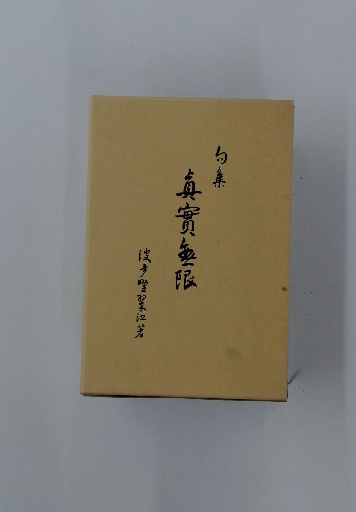 句集
眞實無限
波多野翠江著